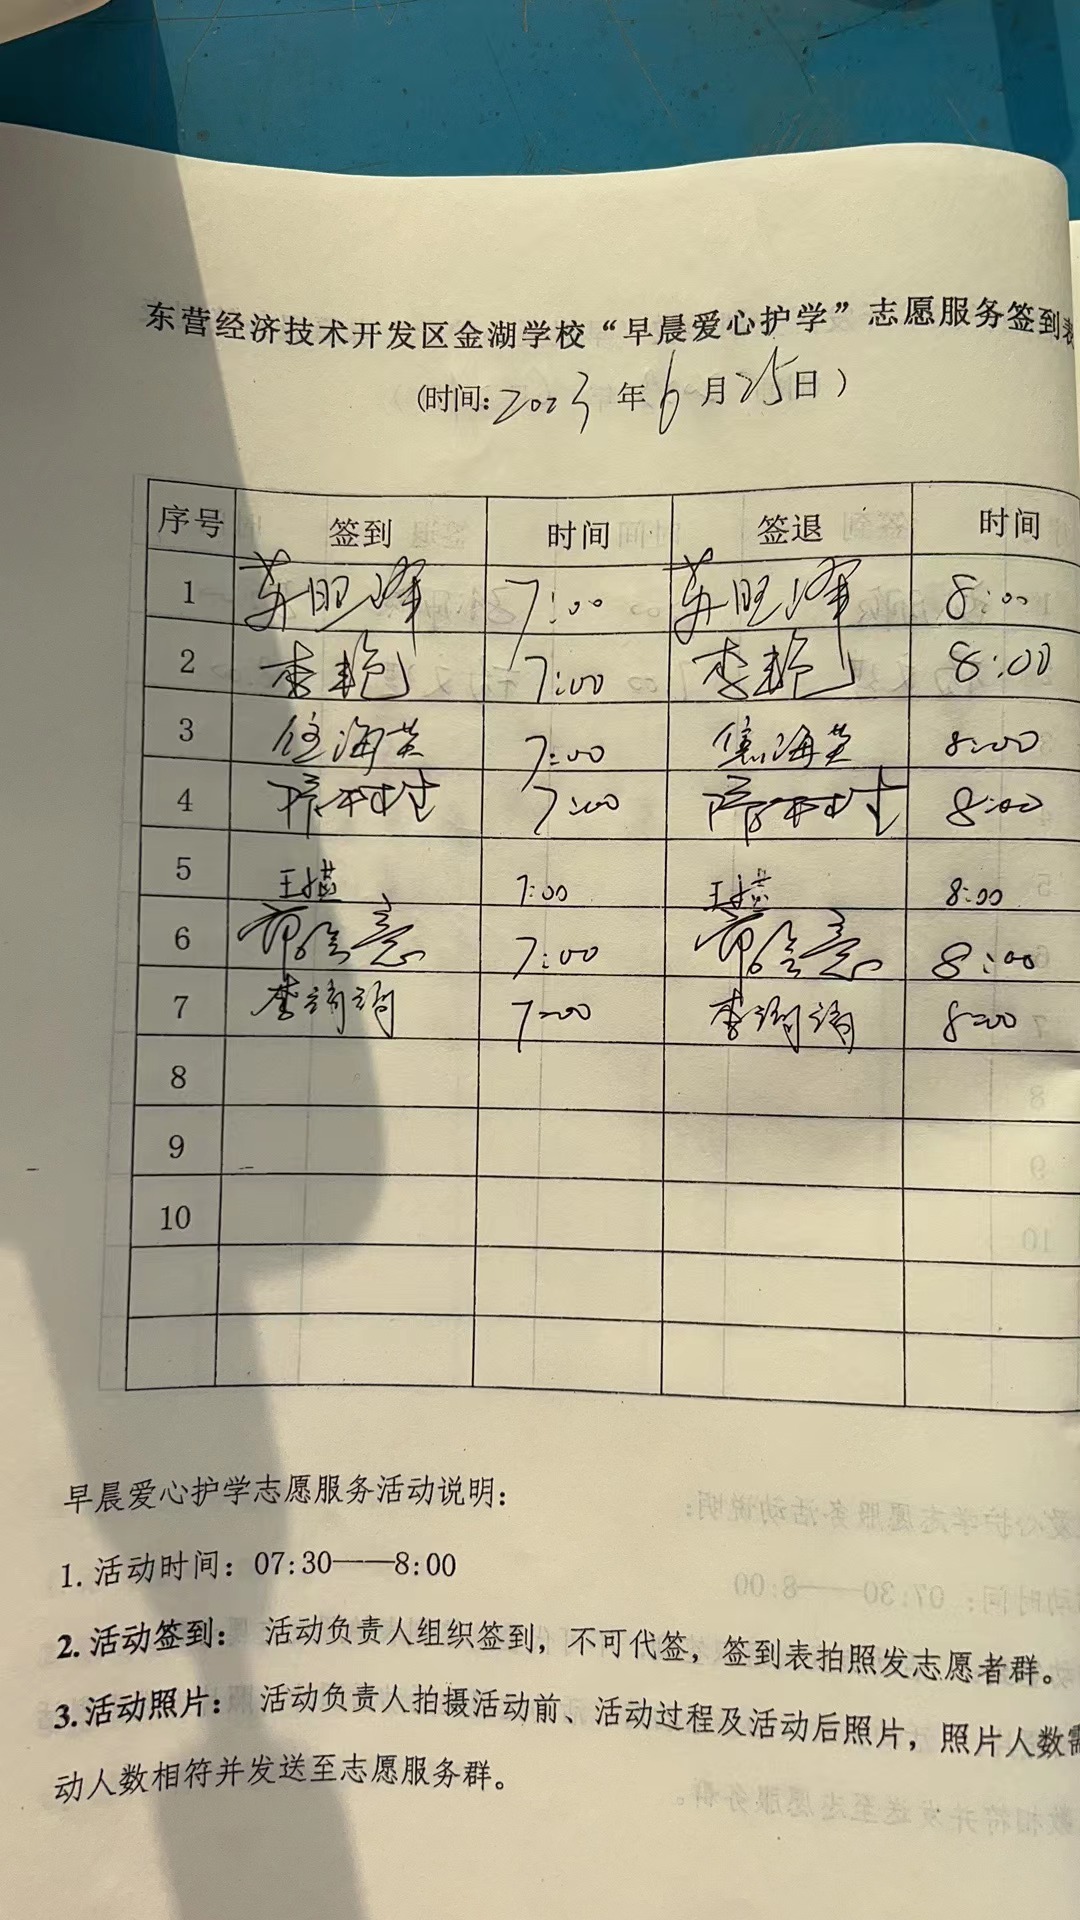 东营经济技术开发区金湖学校“早晨爱心护学”志愿服务签到表
(时间: 2023 年 6 月 25 日 )
序号 签到 时间 签退 时间
1 7:00 8:00
2 李艳 7:00 李艳 8:00
3 海英 7:00 海英 8:00
4 7:00 8:00
5 王 7:00 王 8:00
6 7:00 8:00
7 李 7:00 李 8:00
8
9
10
早晨爱心护学志愿服务活动说明:
1. 活动时间: 07:30——8:00
2. 活动签到: 活动负责人组织签到, 不可代签, 签到表拍照发志愿者群。
3. 活动照片: 活动负责人拍摄活动前、活动过程及活动后照片, 照片人数需
动人数相符并发送至志愿服务群。